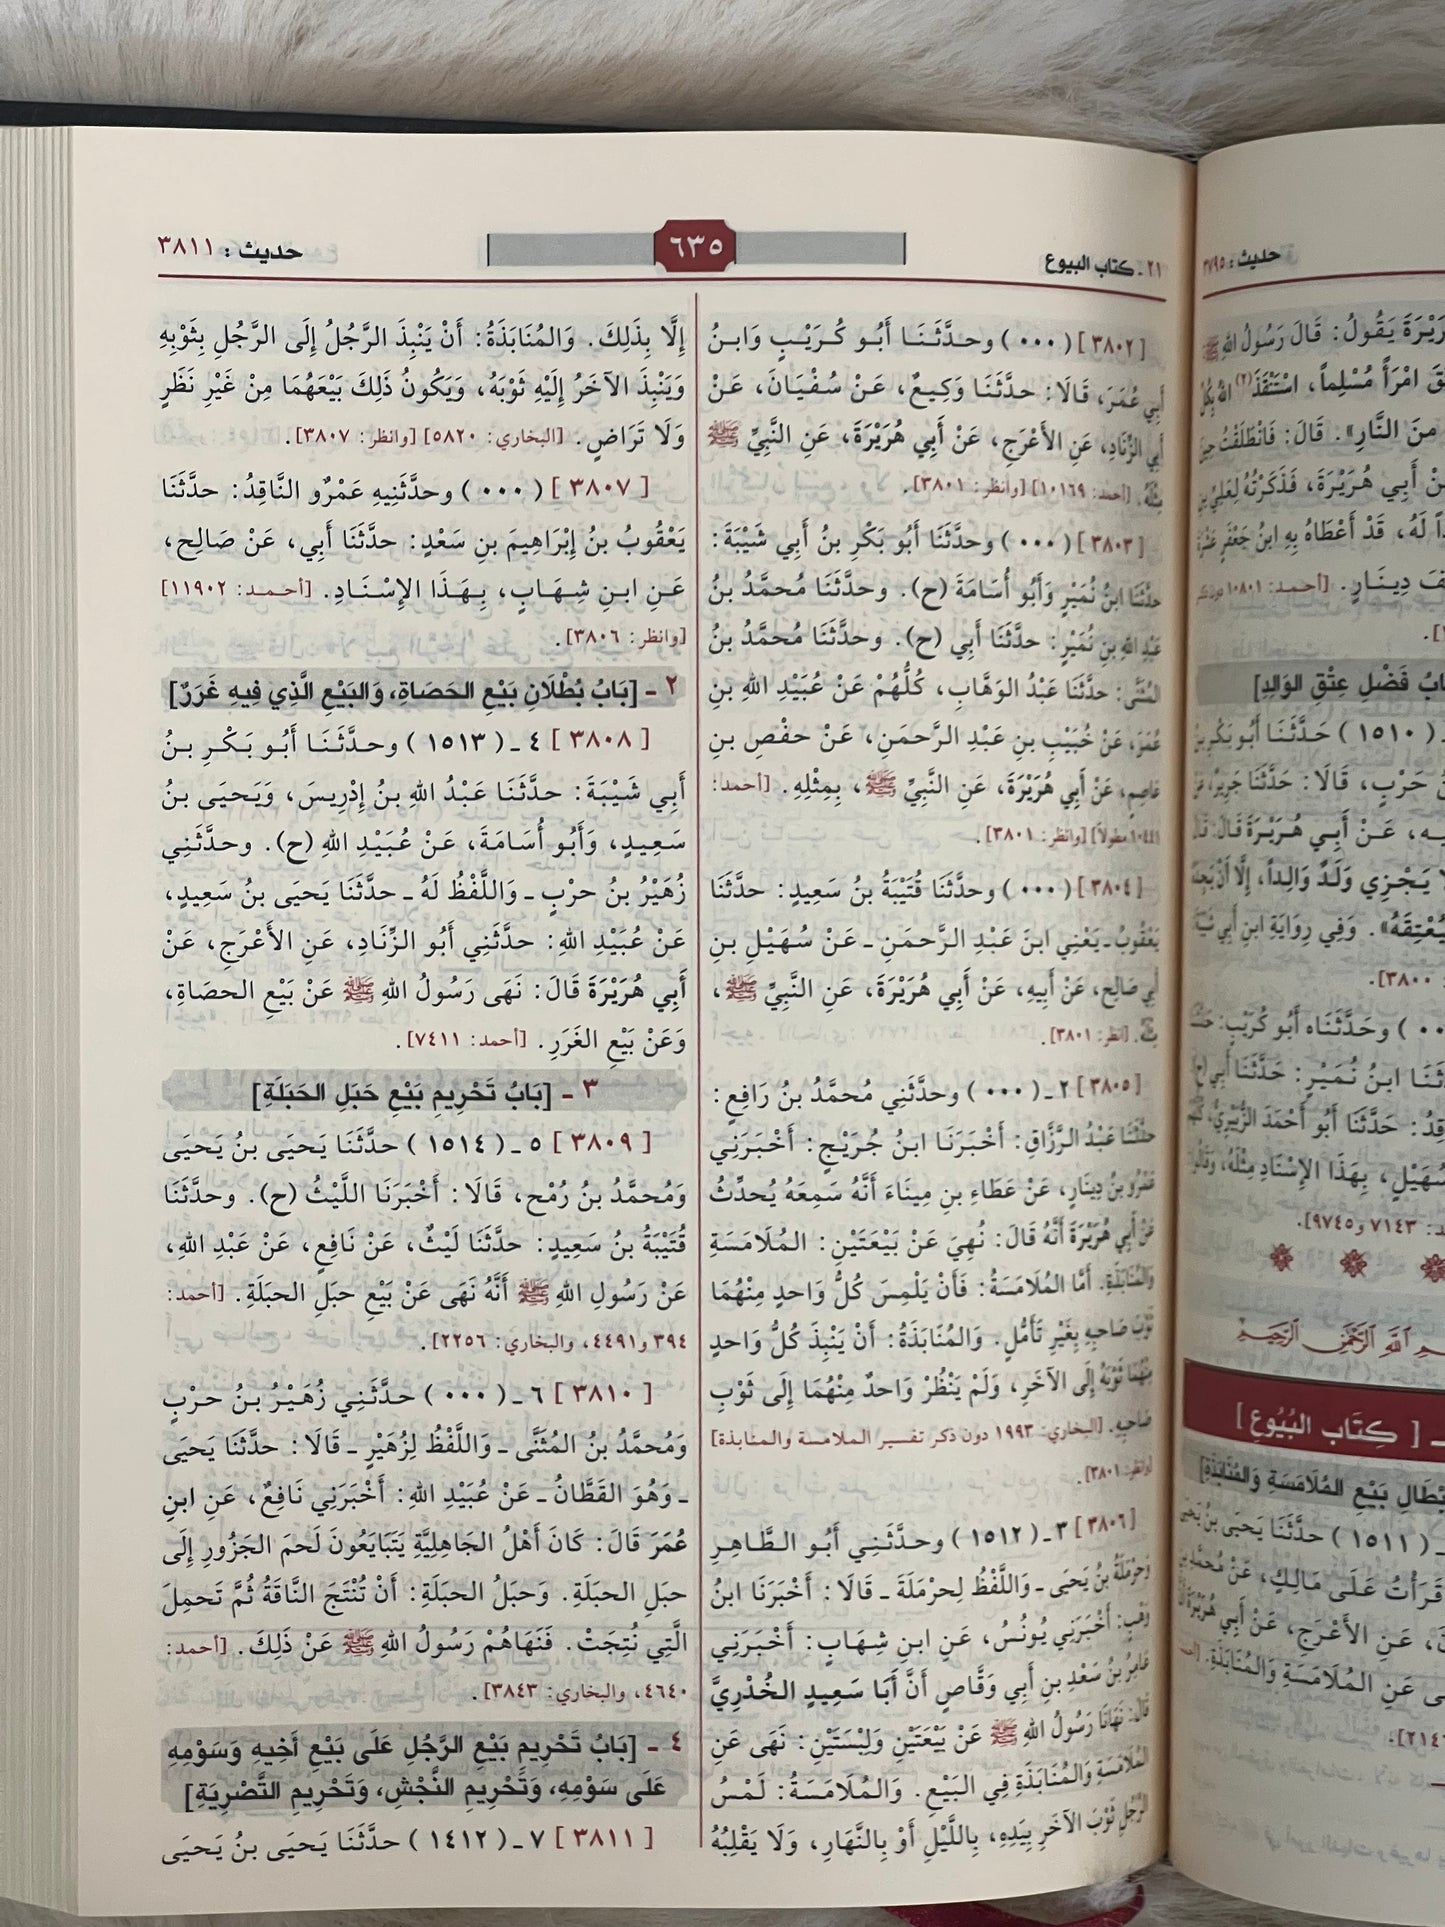 ٢١ ـ كتاب البيوع
٦٣٥
حديث : ٣٨١١
[ ٣٨٠٢ ] ( ٠٠٠ ) وحدَّثَنَا أَبُو كُرَيْبٍ وَابنُ
أَبِي عُمَرَ، قَالَا: حدَّثَنَا وَكِيعٌ، عَنْ سُفْيَانَ، عَنْ
أَبِي الزِّنَادِ، عَنِ الأَعْرَجِ، عَنْ أَبِي هُرَيْرَةَ، عَنِ النَّبِيِّ ﷺ
مِثْلَهُ. [أحمد: ١٠١٦٩] [وانظر: ٣٨٠١].
[ ٣٨٠٣ ] ( ٠٠٠ ) وحدَّثَنَا أَبُو بَكْرِ بنُ أَبِي شَيْبَةَ:
حدَّثَنَا ابنُ نُمَيْرٍ وَأَبُو أُسَامَةَ (ح). وحدَّثَنَا مُحمَّدُ بنُ
عَبْدِ اللهِ بنِ نُمَيْرٍ: حدَّثَنَا أَبِي (ح). وحدَّثَنَا مُحمَّدُ بنُ
المُثَنَّى: حدَّثَنَا عَبْدُ الوَهَّابِ، كُلُّهُمْ عَنْ عُبَيْدِ اللهِ بنِ
عُمَرَ، عَنْ خُبَيْبِ بنِ عَبْدِ الرَّحمَنِ، عَنْ حفْصِ بنِ
عَاصِمٍ، عَنْ أَبِي هُرَيْرَةَ، عَنِ النَّبِيِّ ﷺ، بِمِثْلِهِ. [أحمد:
١٠٤٤١ مطولاً] [وانظر: ٣٨٠١].
[ ٣٨٠٤ ] ( ٠٠٠ ) وحدَّثَنَا قُتَيْبَةُ بنُ سَعِيدٍ: حدَّثَنَا
يَعْقُوبُ ـ يَعْنِي ابنَ عَبْدِ الرَّحمَنِ ـ عَنْ سُهَيْلِ بنِ
أَبِي صَالِحٍ، عَنْ أَبِيهِ، عَنْ أَبِي هُرَيْرَةَ، عَنِ النَّبِيِّ ﷺ،
مِثْلَهُ. [انظر: ٣٨٠١].
[ ٣٨٠٥ ] ٢ ـ ( ٠٠٠ ) وحدَّثَنِي مُحمَّدُ بنُ رَافِعٍ:
حدَّثَنَا عَبْدُ الرَّزَّاقِ: أَخْبَرَنَا ابنُ جُرَيْجٍ: أَخْبَرَنِي
عَمْرُو بنُ دِينَارٍ، عَنْ عَطَاءِ بنِ مِينَاءَ أَنَّهُ سَمِعَهُ يُحدِّثُ
عَنْ أَبِي هُرَيْرَةَ أَنَّهُ قَالَ: نُهِيَ عَنْ بَيْعَتَيْنِ: المُلَامَسَةِ
وَالمُنَابَذَةِ. أَمَّا المُلَامَسَةُ: فَأَنْ يَلْمِسَ كُلُّ وَاحدٍ مِنْهُمَا
ثَوْبَ صَاحِبِهِ بِغَيْرِ تَأَمُّلٍ. وَالمُنَابَذَةُ: أَنْ يَنْبِذَ كُلُّ وَاحدٍ
مِنْهُمَا ثَوْبَهُ إِلَى الآخَرِ، وَلَمْ يَنْظُرْ وَاحدٌ مِنْهُمَا إِلَى ثَوْبِ
صَاحِبِهِ. [البخاري: ١٩٩٣ دون ذكر تفسير الملامسة والمنابذة]
[وانظر: ٣٨٠١].
[ ٣٨٠٦ ] ٣ ـ ( ١٥١٢ ) وحدَّثَنِي أَبُو الطَّاهِرِ
وَحرْمَلَةُ بنُ يَحيَى ـ وَاللَّفْظُ لِحرْمَلَةَ ـ قَالَا: أَخْبَرَنَا ابنُ
وَهْبٍ: أَخْبَرَنِي يُونُسُ، عَنِ ابنِ شِهَابٍ: أَخْبَرَنِي
عَامِرُ بنُ سَعْدِ بنِ أَبِي وَقَّاصٍ أَنَّ أَبَا سَعِيدٍ الخُدْرِيَّ
قَالَ: نَهَانَا رَسُولُ اللهِ ﷺ عَنْ بَيْعَتَيْنِ وَلِبْسَتَيْنِ: نَهَى عَنِ
المُلَامَسَةِ وَالمُنَابَذَةِ فِي البَيْعِ. وَالمُلَامَسَةُ: لَمْسُ
الرَّجُلِ ثَوْبَ الآخَرِ بِيَدِهِ، بِاللَّيْلِ أَوْ بِالنَّهَارِ، وَلَا يَقْلِبُهُ
إِلَّا بِذَلِكَ. وَالمُنَابَذَةُ: أَنْ يَنْبِذَ الرَّجُلُ إِلَى الرَّجُلِ بِثَوْبِهِ
وَيَنْبِذَ الآخَرُ إِلَيْهِ ثَوْبَهُ، وَيَكُونُ ذَلِكَ بَيْعَهُمَا مِنْ غَيْرِ نَظَرٍ
وَلَا تَرَاضٍ. [البخاري: ٥٨٢٠] [وانظر: ٣٨٠٧].
[ ٣٨٠٧ ] ( ٠٠٠ ) وحدَّثَنِيهِ عَمْرٌو النَّاقِدُ: حدَّثَنَا
يَعْقُوبُ بنُ إِبْرَاهِيمَ بنِ سَعْدٍ: حدَّثَنَا أَبِي، عَنْ صَالِحٍ،
عَنِ ابنِ شِهَابٍ، بِهَذَا الإِسْنَادِ. [أحمد: ١١٩٠٢]
[وانظر: ٣٨٠٦].
٢ ـ [بَابُ بُطْلَانِ بَيْعِ الحَصَاةِ، وَالبَيْعِ الَّذِي فِيهِ غَرَرٌ]
[ ٣٨٠٨ ] ٤ ـ ( ١٥١٣ ) وحدَّثَنَا أَبُو بَكْرِ بنُ
أَبِي شَيْبَةَ: حدَّثَنَا عَبْدُ اللهِ بنُ إِدْرِيسَ، وَيَحيَى بنُ
سَعِيدٍ، وَأَبُو أُسَامَةَ، عَنْ عُبَيْدِ اللهِ (ح). وحدَّثَنِي
زُهَيْرُ بنُ حرْبٍ ـ وَاللَّفْظُ لَهُ ـ حدَّثَنَا يَحيَى بنُ سَعِيدٍ،
عَنْ عُبَيْدِ اللهِ: حدَّثَنِي أَبُو الزِّنَادِ، عَنِ الأَعْرَجِ، عَنْ
أَبِي هُرَيْرَةَ قَالَ: نَهَى رَسُولُ اللهِ ﷺ عَنْ بَيْعِ الحصَاةِ،
وَعَنْ بَيْعِ الغَرَرِ. [أحمد: ٧٤١١].
٣ ـ [بَابُ تَحْرِيمِ بَيْعِ حَبَلِ الحَبَلَةِ]
[ ٣٨٠٩ ] ٥ ـ ( ١٥١٤ ) حدَّثَنَا يَحيَى بنُ يَحيَى
وَمُحمَّدُ بنُ رُمْحٍ، قَالَا: أَخْبَرَنَا اللَّيْثُ (ح). وحدَّثَنَا
قُتَيْبَةُ بنُ سَعِيدٍ: حدَّثَنَا لَيْثٌ، عَنْ نَافِعٍ، عَنْ عَبْدِ اللهِ،
عَنْ رَسُولِ اللهِ ﷺ أَنَّهُ نَهَى عَنْ بَيْعِ حبَلِ الحبَلَةِ. [أحمد:
٣٩٤ و٤٤٩١، والبخاري: ٢٢٥٦].
[ ٣٨١٠ ] ٦ ـ ( ٠٠٠ ) حدَّثَنِي زُهَيْرُ بنُ حرْبٍ
وَمُحمَّدُ بنُ المُثَنَّى ـ وَاللَّفْظُ لِزُهَيْرٍ ـ قَالَا: حدَّثَنَا يَحيَى
ـ وَهُوَ القَطَّانُ ـ عَنْ عُبَيْدِ اللهِ: أَخْبَرَنِي نَافِعٌ، عَنِ ابنِ
عُمَرَ قَالَ: كَانَ أَهْلُ الجَاهِلِيَّةِ يَتَبَايَعُونَ لَحمَ الجَزُورِ إِلَى
حبَلِ الحبَلَةِ. وَحبَلُ الحبَلَةِ: أَنْ تُنْتَجَ النَّاقَةُ ثُمَّ تَحمِلَ
الَّتِي نُتِجَتْ. فَنَهَاهُمْ رَسُولُ اللهِ ﷺ عَنْ ذَلِكَ. [أحمد:
٤٦٤٠، والبخاري: ٣٨٤٣].
٤ ـ [بَابُ تَحْرِيمِ بَيْعِ الرَّجُلِ عَلَى بَيْعِ أَخِيهِ وَسَوْمِهِ
عَلَى سَوْمِهِ، وَتَحْرِيمِ النَّجْشِ، وَتَحْرِيمِ التَّصْرِيَةِ]
[ ٣٨١١ ] ٧ ـ ( ١٤١٢ ) حدَّثَنَا يَحيَى بنُ يَحيَى
حديث : ٣٧٩٥
يَقُولُ: قَالَ رَسُولُ اللهِ ﷺ
امْرَأً مُسْلِماً، اسْتَنْقَذَ(٢) اللهُ بِكُلِّ
مِنَ النَّارِ». قَالَ: فَانْطَلَقْتُ حِينَ
أَبِي هُرَيْرَةَ، فَذَكَرْتُهُ لِعَلِيِّ بنِ
لَهُ، قَدْ أَعْطَاهُ بِهِ ابنُ جَعْفَرٍ عَشَرَةَ
دِينَارٍ. [أحمد: ١٠٨٠١ دون ذكر
فَضْلِ عِتْقِ الوَالِدِ]
( ١٥١٠ ) حَدَّثَنَا أَبُو بَكْرِ بنُ
حَرْبٍ، قَالَا: حَدَّثَنَا جَرِيرٌ، عَنْ
عَنْ أَبِي هُرَيْرَةَ قَالَ: قَالَ
يَجْزِي وَلَدٌ وَالِداً، إِلَّا أَنْ يَجِدَهُ
. وَفِي رِوَايَةِ ابنِ أَبِي شَيْبَةَ
٣٨٠٠].
وحَدَّثَنَاه أَبُو كُرَيْبٍ: حَدَّثَنَا
ابنُ نُمَيْرٍ: حَدَّثَنَا أَبِي (ح)
حَدَّثَنَا أَبُو أَحْمَدَ الزُّبَيْرِيُّ، كُلُّهُمْ
سُهَيْلٍ، بِهَذَا الإِسْنَادِ مِثْلَهُ، وَقَالُوا
٧١٤٣ و٩٧٤٥].
اللهِ الرَّحْمَنِ الرَّحِيمِ
ـ [ كِتَاب البُيُوعِ ]
بَيْعِ المُلَامَسَةِ وَالمُنَابَذَةِ]
( ١٥١١ ) حدَّثَنَا يَحيَى بنُ يَحيَى
قَرَأْتُ عَلَى مَالِكٍ، عَنْ مُحمَّدِ بنِ
عَنِ الأَعْرَجِ، عَنْ أَبِي هُرَيْرَةَ
عَنِ المُلَامَسَةِ وَالمُنَابَذَةِ.